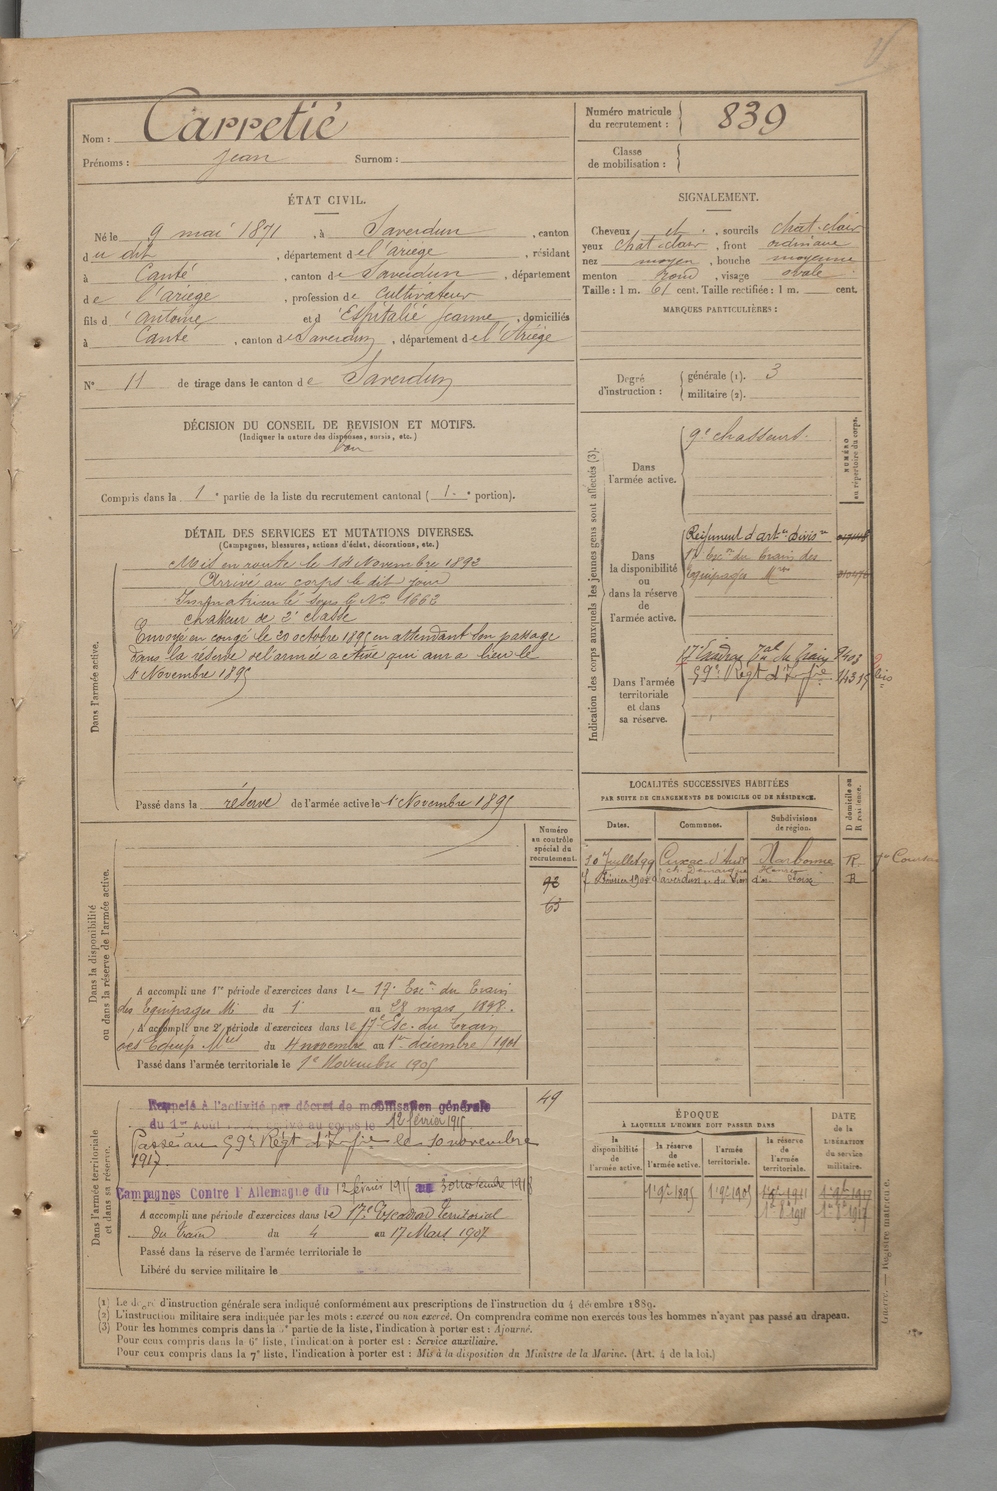 Nom : Carretié
Prénoms : Jean Surnom :
Numéro matricule du recrutement : 839
Classe de mobilisation :
ÉTAT CIVIL.
Né le 9 mai 1871, à Saverdun, canton
du dit, département de l'ariège, résidant
à Canté, canton de Saverdun, département
de l'ariège, profession de cultivateur
fils d'Antoine et d'Espitalié Jeanne, domiciliés
à Canté, canton de Saverdun, département de l'Ariège
N° 11 de tirage dans le canton de Saverdun
SIGNALEMENT.
Cheveux et, sourcils chat-clair
yeux chat-clair, front ordinaire
nez moyen, bouche moyenne
menton rond, visage ovale
Taille : 1 m. 61 cent. Taille rectifiée : 1 m. cent.
MARQUES PARTICULIÈRES :
Degré d'instruction :
générale (1). 3
militaire (2).
DÉCISION DU CONSEIL DE REVISION ET MOTIFS.
(Indiquer la nature des dispenses, sursis, etc.)
bon
Compris dans la 1e partie de la liste du recrutement cantonal (1.e portion).
DÉTAIL DES SERVICES ET MUTATIONS DIVERSES.
(Campagnes, blessures, actions d'éclat, décorations, etc.)
Dans l'armée active.
Mis en route le Novembre 1892
Arrivé au corps le dit jour
Immatriculé sous le No 1662
chasseur de 2e classe
Envoyé en congé le 20 octobre 1895 en attendant son passage
dans la réserve de l'armée active qui aura lieu le
1 Novembre 1895
Passé dans la réserve de l'armée active le 1 Novembre 1895
Indication des corps auxquels les jeunes gens sont affectés (3).
NUMÉRO au répertoire du corps.
Dans l'armée active.
9e chasseurs.
Dans la disponibilité ou dans la réserve de l'armée active.
Régiment d'artie divisre
17 Escon du train des
Equipages Mres
Dans l'armée territoriale et dans sa réserve.
17e Escadron Tal du Train
59e Régt d'Infie
LOCALITÉS SUCCESSIVES HABITÉES
PAR SUITE DE CHANGEMENTS DE DOMICILE OU DE RÉSIDENCE.
D domicile ou R résidence.
Dates. Communes. Subdivisions de région.
30 Juillet 99 Cuxac-d'Aude Narbonne R
7 Février 1904 Saverdun Foix R
Dans la disponibilité ou dans la réserve de l'armée active.
Numéro au contrôle spécial du recrutement.
92
63
A accompli une 1re période d'exercices dans le 17e Escon du Train
des Equipages Mres du 1 au 28 mars 1898.
A accompli une 2e période d'exercices dans le 17e Esc. du Train
des Equip Mres du 4 novembre au 1er décembre 1901
Passé dans l'armée territoriale le 1e Novembre 1905
Dans l'armée territoriale et dans sa réserve.
49
Rappelé à l'activité par décret de mobilisation générale
du 1er Août arrivé au corps le 12 février 1915
Passé au 59e Régt d'Infie le 10 novembre
1917.
Campagnes Contre l'Allemagne du 12 février 1915 au
A accompli une période d'exercices dans le 17e Escadron Territorial
du train du 4 au 17 Mars 1907
Passé dans la réserve de l'armée territoriale le
Libéré du service militaire le
ÉPOQUE
À LAQUELLE L'HOMME DOIT PASSER DANS
DATE de la LIBÉRATION du service militaire.
la disponibilité de l'armée active. la réserve de l'armée active. l'armée territoriale. la réserve de l'armée territoriale.
1 9bre 1895 1 9bre 1905
(1) Le degré d'instruction générale sera indiqué conformément aux prescriptions de l'instruction du 4 décembre 1889.
(2) L'instruction militaire sera indiquée par les mots : exercé ou non exercé. On comprendra comme non exercés tous les hommes n'ayant pas passé au drapeau.
(3) Pour les hommes compris dans la 5e partie de la liste, l'indication à porter est : Ajourné.
Pour ceux compris dans la 6e liste, l'indication à porter est : Service auxiliaire.
Pour ceux compris dans la 7e liste, l'indication à porter est : Mis à la disposition du Ministre de la Marine. (Art. 4 de la loi.)
Guerre. — Registre matricule.